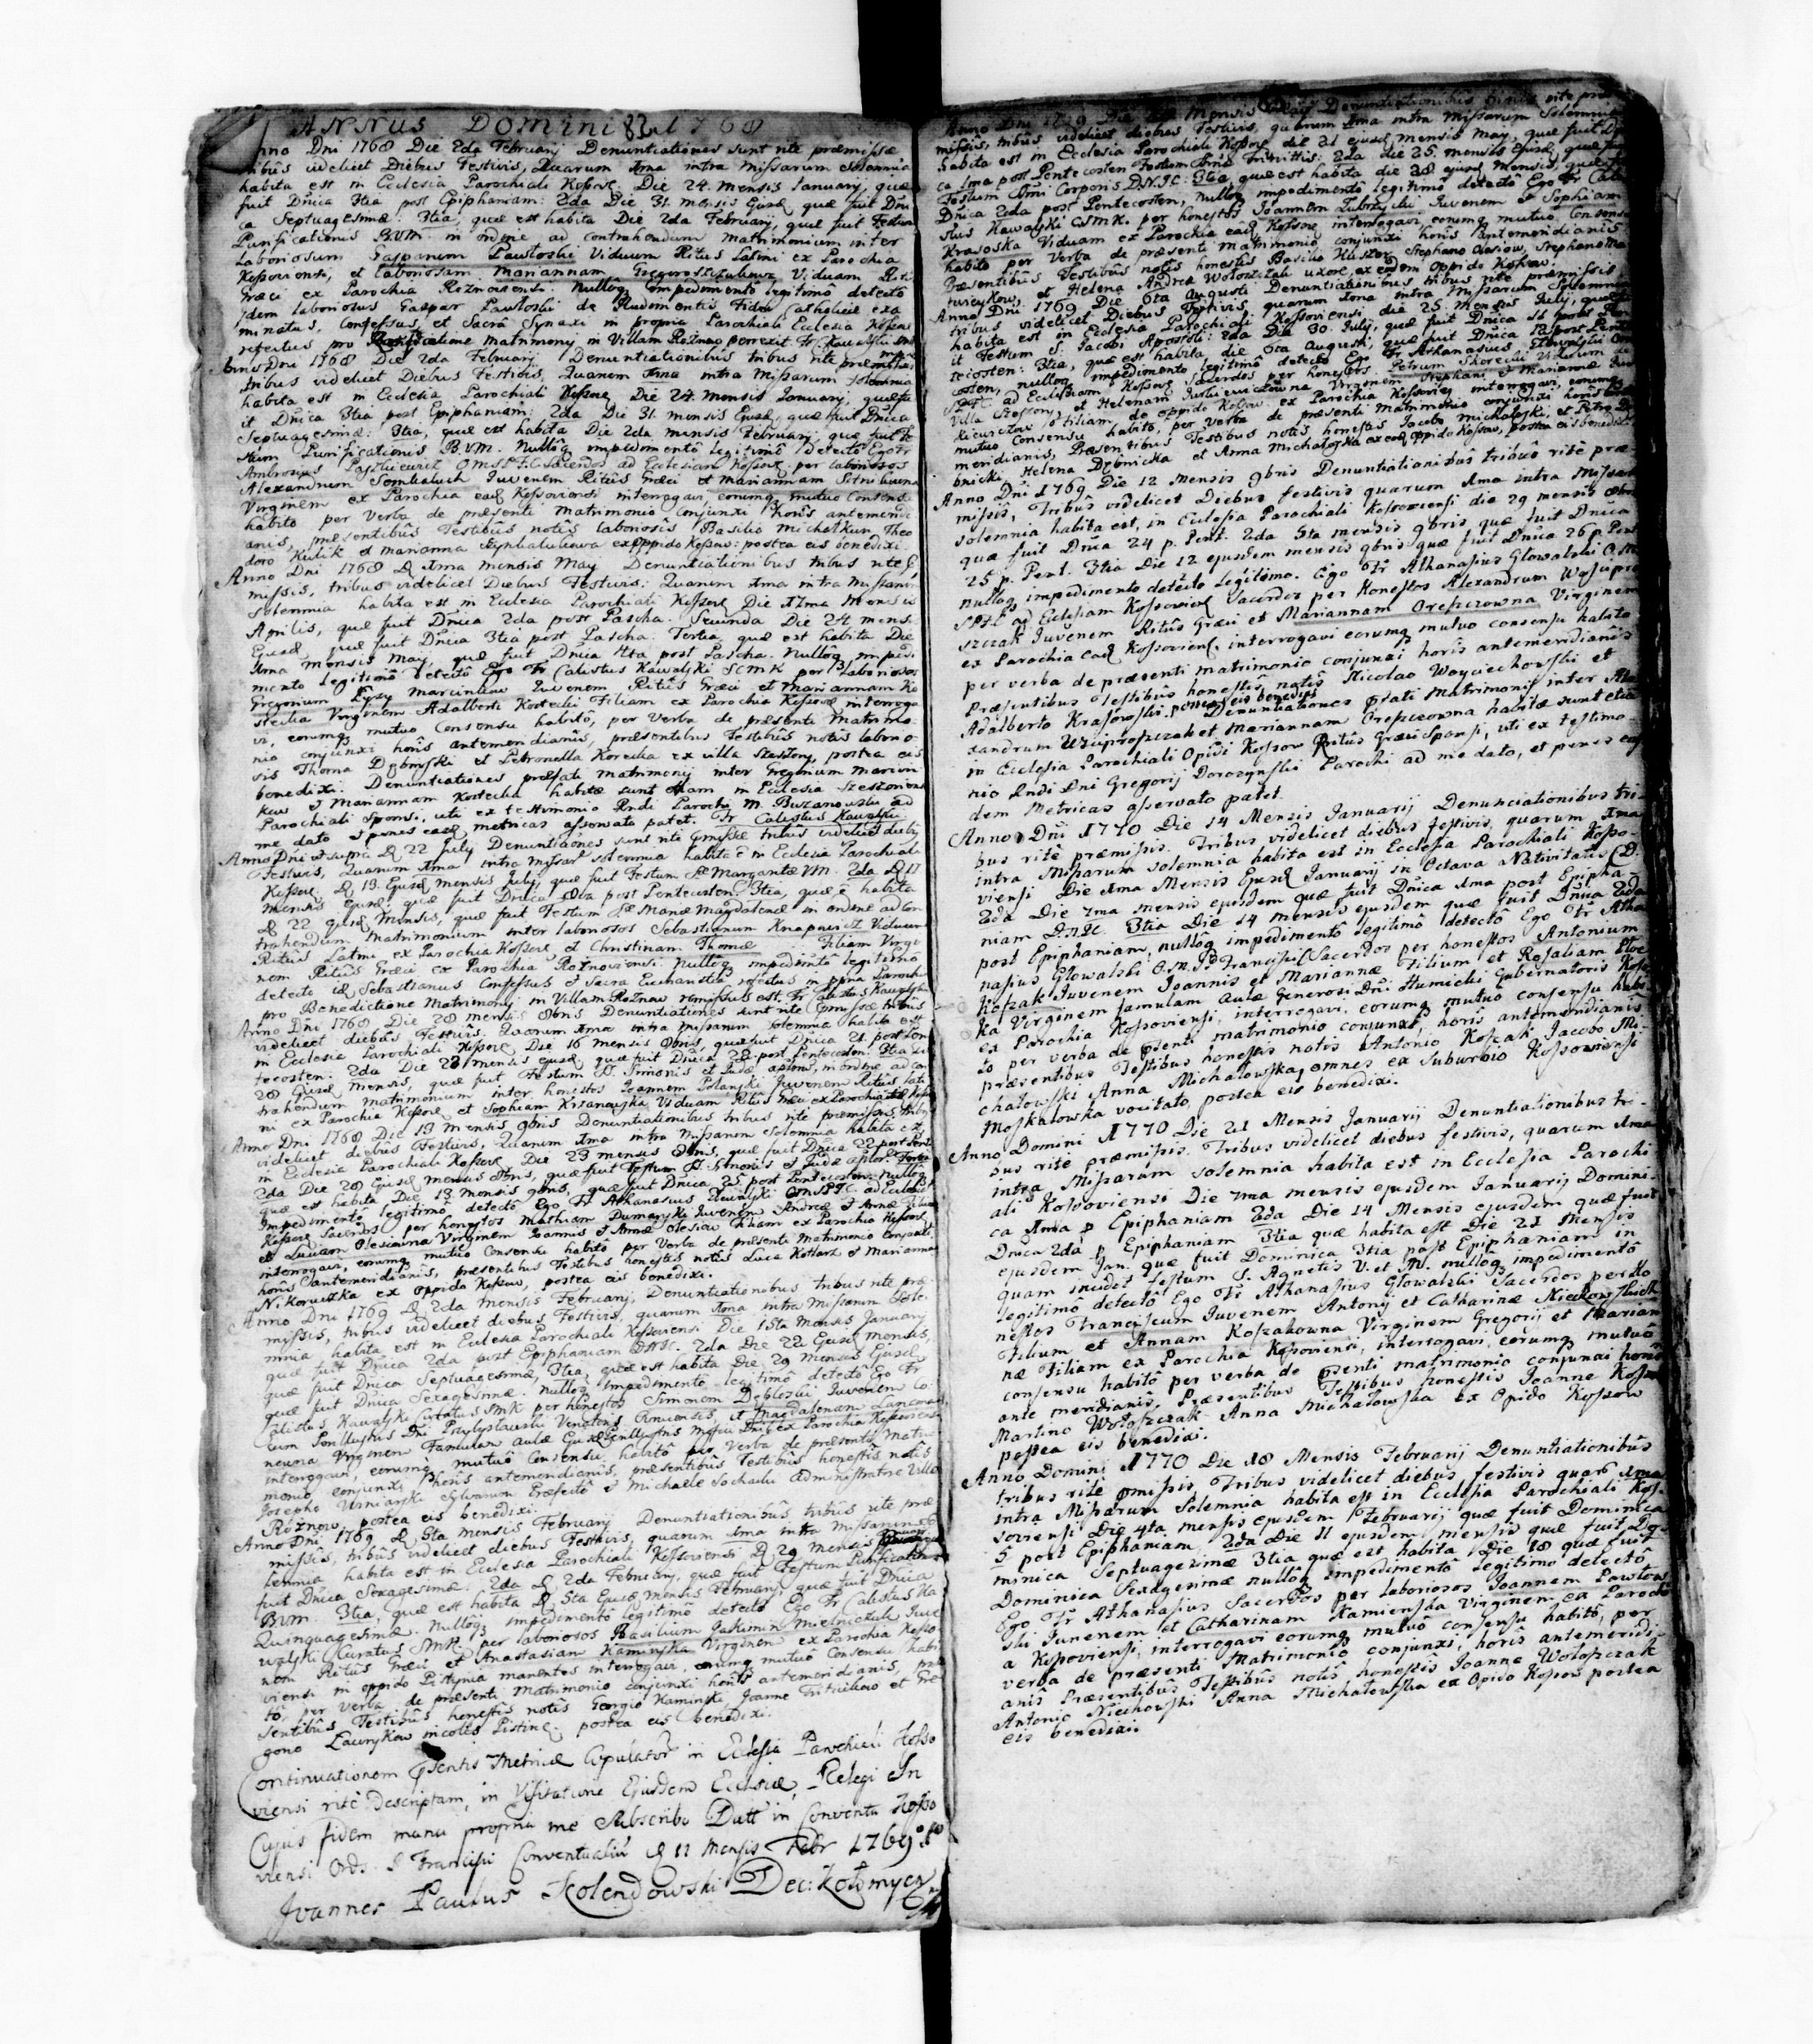 ANNUS DOMINI 1768
Anno Dni 1768 Die 2da February Denuntiationes sunt rite præmissæ
tribûs videlicet Diebus Festivis, Quarum 1ma intra Missarum solemnia
habita est in Ecclesia Parochiali Kossov. Die 24. mensis January, quæ
fuit Dnica 3tia post Epiphaniam: 2da Die 31. mensis Ejusd. quæ fuit Dni
ca Septuagesimæ: 3tia, quæ est habita Die 2da February, quæ fuit Festum
Purificationis B.V.M. in ordine ad contrahendum matrimonium inter
Laboriosum Gasparum Pawłoski Viduum Ritus Latini ex Parochia
Kossoviensi, et laboriosam Mariannam Viduam Ritus
Græci ex Parochia Roznoviensi. Nulloq. impedimentô legitimô detectô
Idem laboriosus Gaspar Pawłoski de Rudimentis Fidei Catholicæ exa
minatus, Confessus, et Sacrâ Synaxi in propria Parochiali Ecclesia Kossov.
refectus pro Benedictione Matrimony in Villam Roznow perrexit. Fr Kawalski
Anno Dni 1768 Die 2da February Denuntiationibus tribus rite præmissis
tribus videlicet Diebus Festivis, Quarum 1ma intra Missarum solemnia
habita est in Ecclesia Parochiali Kossov. Die 24. mensis January, quæ fu
it Dnica 3tia post Epiphaniam: 2da Die 31. mensis Ejusd. quæ fuit Dnica
Septuagesimæ: 3tia, quæ est habita Die 2da mensis February, quæ fuit Fe
stum Purificationis B.V.M. Nulloq. impedimentô legitimô detectô Ego Fr
Ambrosius Sacerdos ad Ecclesiam Kossov. per laboriosos
Alexandrum Juvenem Ritûs Græci et Mariannam
Virginem ex Parochia ead. Kossoviensi interrogavi, eorumq. mutuo Consensu
habito per Verba de præsenti Matrimonio Conjunxi horis antemeridi
anis, præsentibûs Testibûs notis laboriosis Basilio Michałkun, Theo
doro Kulik et Marianna ex Oppido Kossow: postea eis benedixi.
Anno Dni 1768 D. 1ma mensis May Denuntiationibus tribus rite præ
missis, tribus videlicet Diebus Festivis: Quarum 1ma intra Missarum
Solemnia habita est in Ecclesia Parochiali Kossov. Die 17ma Mensis
Aprilis, quæ fuit Dnica 2da post Pascha. Secunda Die 24 mens.
Ejusd. quæ fuit Dnica 3tia post Pascha: Tertia, quæ est habita Die
1ma Mensis May, quæ fuit Dnica 4ta post Pascha. Nulloq. impedi
mento legitimô detectô Ego Fr Calistus Kawalski SCMK per Laboriosos
Gregorium Marcinikow Juvenem Ritûs Græci et Mariannam Ko
stecka Virginem Adalberti Kostecki Filiam ex Parochia Kossov. interroga
vi, eorumq. mutuo Consensu habitô, per Verba de præsenti Matrimo
nio conjunxi horis antemeridianis, præsentibus Testibûs notis laborio
sis Thoma Dębniski et Petronella Korecka ex villa Szeszory, postea eis
benedixi. Denuntiationes præfati matrimony inter Gregorium Marcini
kow et Mariannam Kostecka habitæ sunt etiam in Ecclesia Szeszoriens.
Parochiali Sponsi, uti ex testimonio Rndi Parochi M. Buzanowski ad
me dato et penes easd. metricas asservato patet. Fr Calistus Kawalski
Anno Dni ut supra D. 22 July Denuntiationes sunt rite præmissæ tribûs videlicet diebus
Festivis, Quarum 1ma intra Missar. solemnia habita est in Ecclesia Parochiali
Kossov. D. 13. Ejusd. mensis July, quæ fuit Festum Sæ Margaritæ V.M. 2da D. 17
mensis ejusd. quæ fuit Dnica 8va post Pentecosten: 3tia, quæ est habita
D. 22 ejusd. Mensis, quæ fuit Festum Sæ Mariæ Magdalenæ in ordine ad con
trahendum matrimonium inter laboriosos Sebastianum Knapniicz Viduum
Ritûs Latini ex Parochia Kossov. et Christinam Thomæ Filiam Virgi
nem Ritûs Græci ex Parochia Rożnoviensi nulloq. impedimentô legitimô
detecto id. Sebastianus Confessus et Sacra Eucharistia refectus in ppria Parochia
pro Benedictione Matrimony in Villam Roznow remissus est. Fr Calistus Kawalski
Anno Dni 1768 Die 28 mensis 8bris Denuntiationes sunt rite præmissæ tribus
videlicet diebus Festivis. Quarum 1ma intra Missarum solemnia habita est
in Ecclesia Parochiali Kossov. Die 16 mensis 8bris, quæ fuit Dnica 21. post Pen
tecosten: 2da Die 23 mensis ejusd. quæ fuit Dnica 22. post Pentecosten: 3tia
28 Ejusd. mensis, quæ fuit Festum SS. Simonis et Judæ aplorum, in ordine ad con
trahendum matrimonium inter honestos Joannem Polanski Juvenem Ritûs lati
ni ex Parochia Kossov. et Sophiam Krzanowska Viduam Ritûs Græci ex Parochia
Anno Dni 1768 Die 13 mensis 9bris Denuntiationibus tribus rite præmissis, tribus
videlicet diebus Festivis, Quarum 1ma intra Missarum solemnia habita est
in Ecclesia Parochiali Kossov. Die 23 mensis 8bris, quæ fuit Dnica 22 post Pente
2da Die 28 Ejusd. mensis 8bris, quæ fuit Festum SS. Simonis et Judæ aplor. Tertia
quæ est habita Die 13 mensis 9bris, quæ fuit Dnica 25 post Pentecosten: nulloq.
impedimentô legitimô detectô Ego Fr Athanasius Głowalski OMSPFC ad Ecclesiam
Kossov. Sacerdos per honestos Mathiam Dumanski Juvenem Andreæ et Annæ Filium
et Luciam Olesiowna Virginem Joannis et Annæ Olesiow Filiam ex Parochia Kossov.
interrogavi, eorumq. mutuo Consensu habitô per Verba de præsenti Matrimonio Conjunxi
horis antemeridianis, præsentibus Testibus honestis notis Luca Kotlarz et Marianna
Nikoruczka ex Oppido Kossow, postea eis benedixi.
Anno Dni 1769 D. 2da mensis February, Denuntiationibus tribus rite præ
missis, tribus videlicet diebus Festivis, quarum 1ma intra Missarum Sole
mnia habita est in Ecclesia Parochiali Kossoviensi Die 15ta Mensis January
quæ fuit Dnica 2da post Epiphaniam DNJC. 2da Die 22 Ejusd. mensis,
quæ fuit Dnica Septuagesimæ, 3tia, quæ est habita Die 29 mensis Ejusd.
quæ fuit Dnica Sexagesimæ. Nulloq. impedimentô legitimô detectô Ego Fr
Calistus Kawalski Curatus SMK per honestos Simonem Debleski Juvenem
et Magdalenam
Virginem Famulam aulæ ex Parochia Kossoviensi
interrogavi, eorumq. mutuô Consensu habitô per Verba de præsenti Matri
monio conjunxi horis antemeridianis, præsentibûs Testibûs honestis notis
Josepho Urniarski Sylvarum Præfectô et Michaele Sochacki Administratore Villæ
Roznow, postea eis benedixi.
Anno Dni 1769 D. 5ta mensis February Denuntiationibûs tribûs rite præ
missis, tribûs videlicet diebus Festivis, quarum 1ma intra Missarum so
lemnia habita est in Ecclesia Parochiali Kossoviensi D. 29 mensis January
fuit Dnica Sexagesimæ. 2da D. 2da February, quæ fuit Festum Purificationis
B.V.M. 3tia, quæ est habita D. 5ta Ejusd. mensis February, quæ fuit Dnica
Quinquagesimæ. Nulloq. impedimentô legitimô detectô Ego Fr Calistus Ka
walski Curatus SMK per laboriosos Basilium Jakimin Mielniczuk Juve
nem Ritûs Græci et Anastasiam Kaminska Virginem ex Parochia Kosso
viensi in oppido Pistynia manentes interrogavi, eorumq. mutuô Consensu habi
tô, per Verba de præsenti Matrimonio conjunxi horis antemeridianis, præ
sentibûs Testibûs honestis notis Georgio Kaminski, Joanne et Gre
gorio Ławrykow incolis Pistine. postea eis benedixi.
Continuationem præsentis Metricæ Copulatorum in Eclesia Parochiali Kosso
viensi rite Descriptam, in Visitatione Ejusdem Ecclesiæ, Relegi In
Cujus fidem manu propria me Subscribo Datt in Conventu Kosso
viensi Ord. S. Francisci Conventualium D. 11 Mensis Febr 1769
Joannes Paulus Kolendowski Dec: Kołomyen
Anno Dni 1769 Die mensis May Denuntiationibûs tribûs rite præ
missis, tribûs videlicet diebus Festivis, quarum 1ma intra Missarum Solemnia
habita est in Ecclesia Parochiali Kossov. die 21 ejusd. mensis May, quæ fuit Dni
ca 1ma post Pentecosten Festum Ssmæ Trinitatis: 2da die 25. mensis Ejusd. quæ fuit
Festum Ssmi Corporis D.N.J.C: 3tia, quæ est habita die 28 ejusd. mensis, quæ fuit
Dnica 2da post Pentecosten, nulloq. impedimentô legitimô detectô Ego Fr Cali
stus Kawalski CSMK. per honestos Joannem Zubrzycki Juvenem et Sophiam
Krasoska Viduam ex Parochia ead. Kossov. interrogavi eorumq. mutuo Consensu
habito per Verba de præsenti Matrimonio conjunxi horis Antemeridianis
Præsentibûs Testibûs notis honestis Basilio Huszcz, Stephano Olesiow, Stephano
et Helena Andreæ uxore, ex eodem Oppido Kossow.
Anno Dni 1769 Die 6ta Augusti Denuntiationibus tribus rite præmissis
tribus videlicet Diebus Festivis, quarum 1ma intra Missarum Solemnia
habita est in Ecclesia Parochiali Kossoviensi die 25 mensis July, quæ fu
it Festum S. Jacobi Apostoli: 2da Die 30. July, quæ fuit Dnica 11 post Pen
tecosten: 3tia, quæ est habita, die 6ta Augusti, quæ fuit Dnica 12 post Pente
costen, nulloq. impedimento legitimô detecto Ego Fr Athanasius Głowalski
ad Ecclesiam Kossov. Sacerdos per honestos Petrum Skorecki Viduum de
Villa Szeszory, et Helenam Virginem Stephani et Mariannæ
Filiam de oppido Kossow ex Parochia Kossov. interrogavi, eorumq.
mutuo Consensu habito, per Verba de præsenti Matrimonio conjunxi horis ante
meridianis, Præsentibus Testibus notis honestis Jacobo Michałoski, et Petro Dę
bnicki, Helena Dębnicka et Anna Michałoska ex eod. oppido Kossow, postea eis benedixi.
Anno Dni 1769 Die 12 Mensis 9bris Denuntiationibûs tribûs ritè præ
missis, Tribûs videlicet Diebus festivis quarum 1ma intra Missar.
solemnia habita est, in Ecclesia Parochiali Kossoviensi die 29 mensis 8bris
quæ fuit Dnica 24 p. Pent. 2da 5ta mensis 9bris, quæ fuit Dnica
25 p. Pent. 3tia Die 12 ejusdem mensis 9bris quæ fuit Dnica 26 p. Pent
nulloq. impedimento detecto legitimo. Ego Fr Athanasius Głowalski O.M.
S.P.F.C. ad Ecclesiam Kossoviens. Sacerdos per Honestos Alexandrum Wasiupro
szczak Juvenem Ritûs Græci et Mariannam Oreszczowna Virginem
ex Parochia ead. Kossoviens. interrogavi eorumq. mutuo consensu habito
per verba de præsenti matrimonio conjunxi horis antemeridianis
præsentibus Testibus honestis notis Nicolao Woyciechowski et
Adalberto Krasowski, postea eis benedixi. Denuntiationes præfati Matrimonij inter Ale
xandrum Wasiuproszczak et Mariannam Oreszczowna habitæ sunt etiam
in Ecclesia Parochiali Opidi Kossow Ritûs Græci Sponsi, uti ex testimo
nio Rndi Dni Gregorij Dorozynski Parochi ad me dato, et penes eas
dem Metricas asservato patet.
Anno Dni 1770 Die 14 Mensis Januarij Denunciationibus tri
bus ritè præmissis. Tribus videlicet diebus festivis, quarum 1ma
intra Missarum solemnia habita est in Ecclesia Parochiali Kosso
viensi Die 1ma Mensis Ejusd. Januarij in Octava Nativitatis D.
2da Die 7ma mensis ejusdem quæ fuit Dnica 1ma post Epipha
niam D.N.J.C. 3tia Die 14 mensis ejusdem quæ fuit Dnica 2da
post Epiphaniam, nulloq. impedimentô legitimô detectô Ego Fr Atha
nasius Głowalski O.M.S.P. Francisci Sacerdos per honestos Antonium
Koszak Juvenem Joannis et Mariannæ Filium et Rosaliam
ka Virginem famulam aulæ Generosi Dni Humicki Gubernatoris Kosso
ex Parochia Kossoviensi, interrogavi, eorumq. mutuo consensu habi
to per verba de præsenti matrimonio conjunxi, horis antemeridianis
præsentibus Testibus honestis notis Antonio Koszak Jacobo Mi
chałowski Anna Michałowska, omnes ex Suburbio Kossoviensi
Moskalowka vocitato, postea eis benedixi.
Anno Domini 1770 Die 21 Mensis Januarij Denuntiationibus tri
bus ritè præmissis. Tribus videlicet diebus festivis, quarum 1ma
intra Missarum solemnia habita est in Ecclesia Parochi
ali Kossoviensi Die 7ma mensis ejusdem Januarij Domini
ca 1ma p Epiphaniam 2da Die 14 Mensis ejusdem quæ fuit
Dnica 2da p Epiphaniam 3tia quæ habita est Die 21 Mensis
ejusdem Jan. quæ fuit Dominica 3tia post Epiphaniam in
quam incidit festum S. Agnetis V. et M. nulloq. impedimentô
legitimô detectô Ego Fr Athanasius Głowalski Sacerdos per Ho
nestos Franciscum Juvenem Antonij et Catharinæ
Filium et Annam Koszakowna Virginem Gregorij et Marian
næ Filiam ex Parochia Kossoviensi, interrogavi, eorumq. mutuô
consensu habitô per verba de præsenti matrimonio conjunxi horis
ante meridianis, Præsentibus Testibus honestis Joanne
Martino Wołoszczak Anna Michałowska ex Opido Kossow
postea eis benedixi.
Anno Domini 1770 Die 18 Mensis Februarij Denuntiationibûs
tribus ritè præmissis, Tribus videlicet diebus festivis quaru 1ma
intra Missarum Solemnia habita est in Ecclesia Parochiali Kos
soviensi Die 4ta mensis ejusdem Februarij quæ fuit Dominica
5 post Epiphaniam 2da Die 11 ejusdem mensis quæ fuit Do
minica Septuagesimæ 3tia quæ est habita Die 18 quæ fuit
Dominica Sexagesimæ nulloq. impedimentô legitimo detectô
Ego Fr Athanasius Sacerdos per laboriosos Joannem Pawłow
ski Juvenem et Catharinam Kamienska Virginem ex Parochi
a Kossoviensi, interrogavi eorumq. mutuô consensu habitô, per
verba de præsenti Matrimoniô conjunxi, horis antemeridi
anis Præsentibûs Testibûs notis honestis Joanne Wołoszczak
Antonio Niechowski Anna Michałowska ex Opido Kossow postea
eis benedixi.